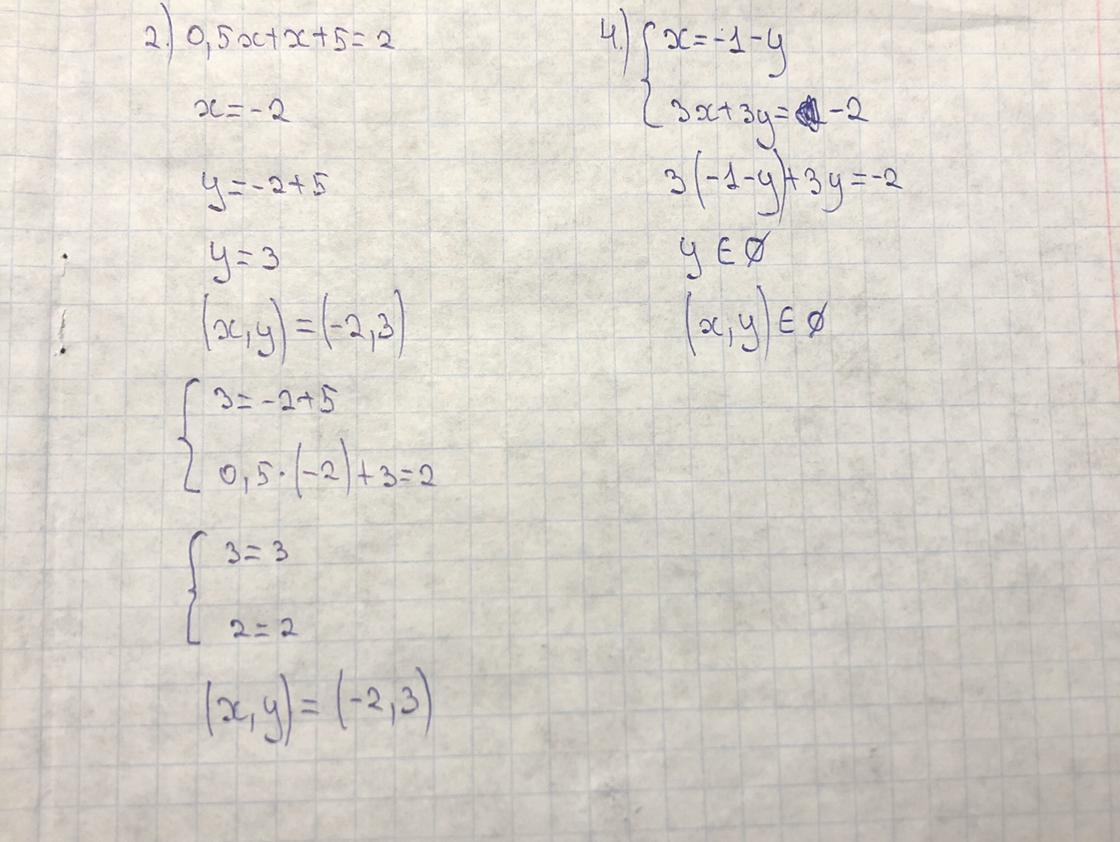 2.) 0,5x+x+5=2
x=-2
y=-2+5
y=3
(x,y)=(-2,3)
{ 3=-2+5
0,5·(-2)+3=2
{ 3=3
2=2
(x,y)=(-2,3)
4.) { x=-1-y
3x+3y= -2
3(-1-y)+3y=-2
y∈∅
(x,y)∈∅